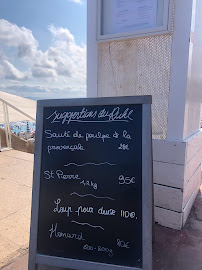 suggestions du Club
Sauté de poulpe à la
provençale 28€
St Pierre
1,2 kg 95€
Loup pour deux 110€.
Homard
600-800g 80€